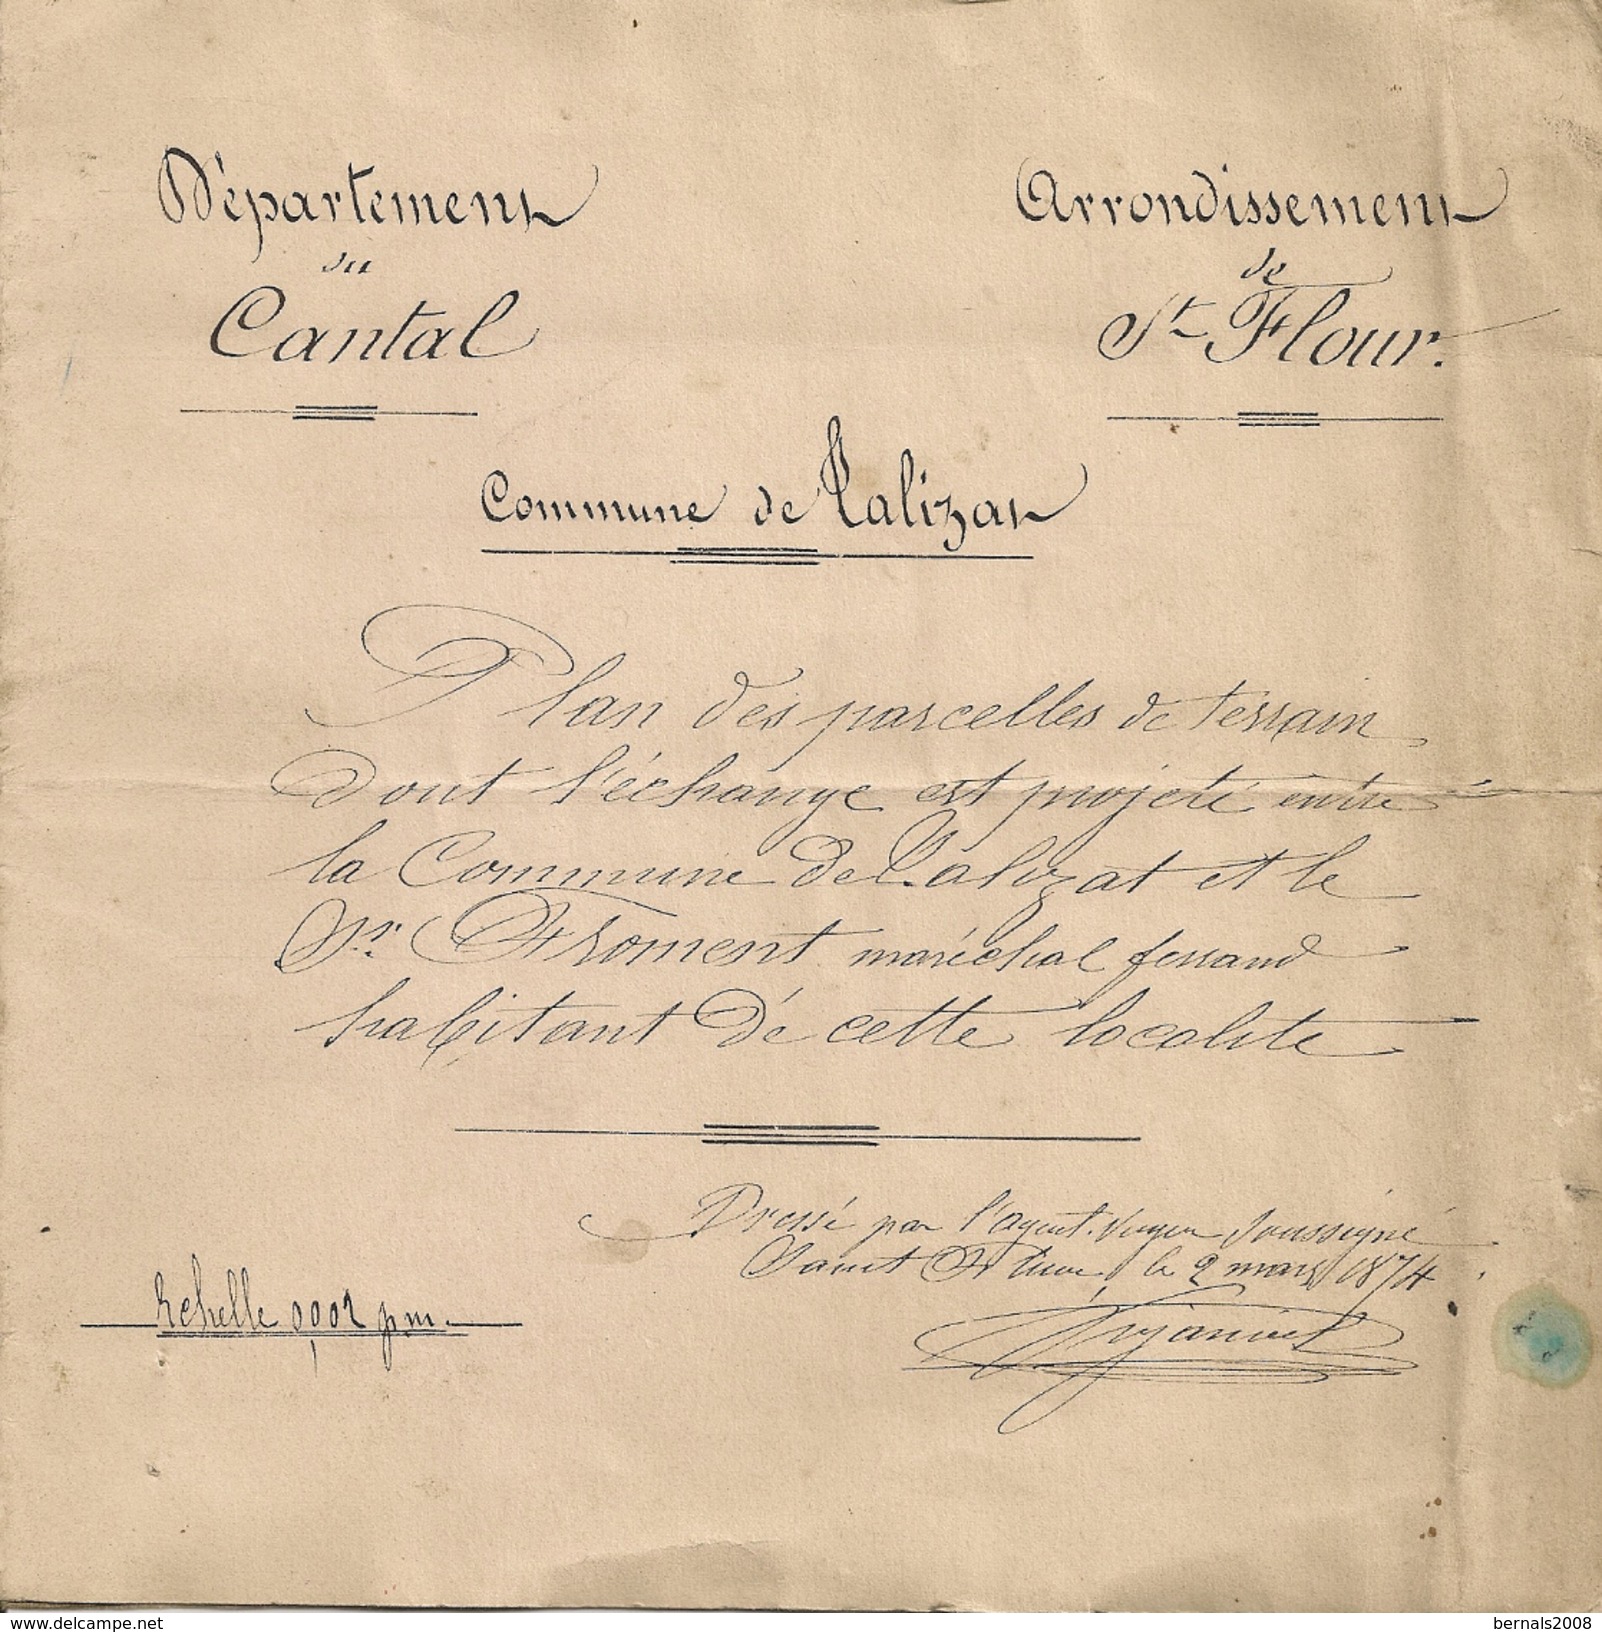 Département
Arrondissement
du
de
Cantal
St Flour.
Commune de Talizat
Plan des parcelles de terrain
dont l'échange est projeté entre
la Commune de Talizat et le
Sr. Froment maréchal ferrand
habitant de cette localité
Dressé par l'agent-Voyer Soussigné
Saint Flour, le 2 mars 1874
Echelle 0,002 p.m.
www.delcampe.net
bernals2008